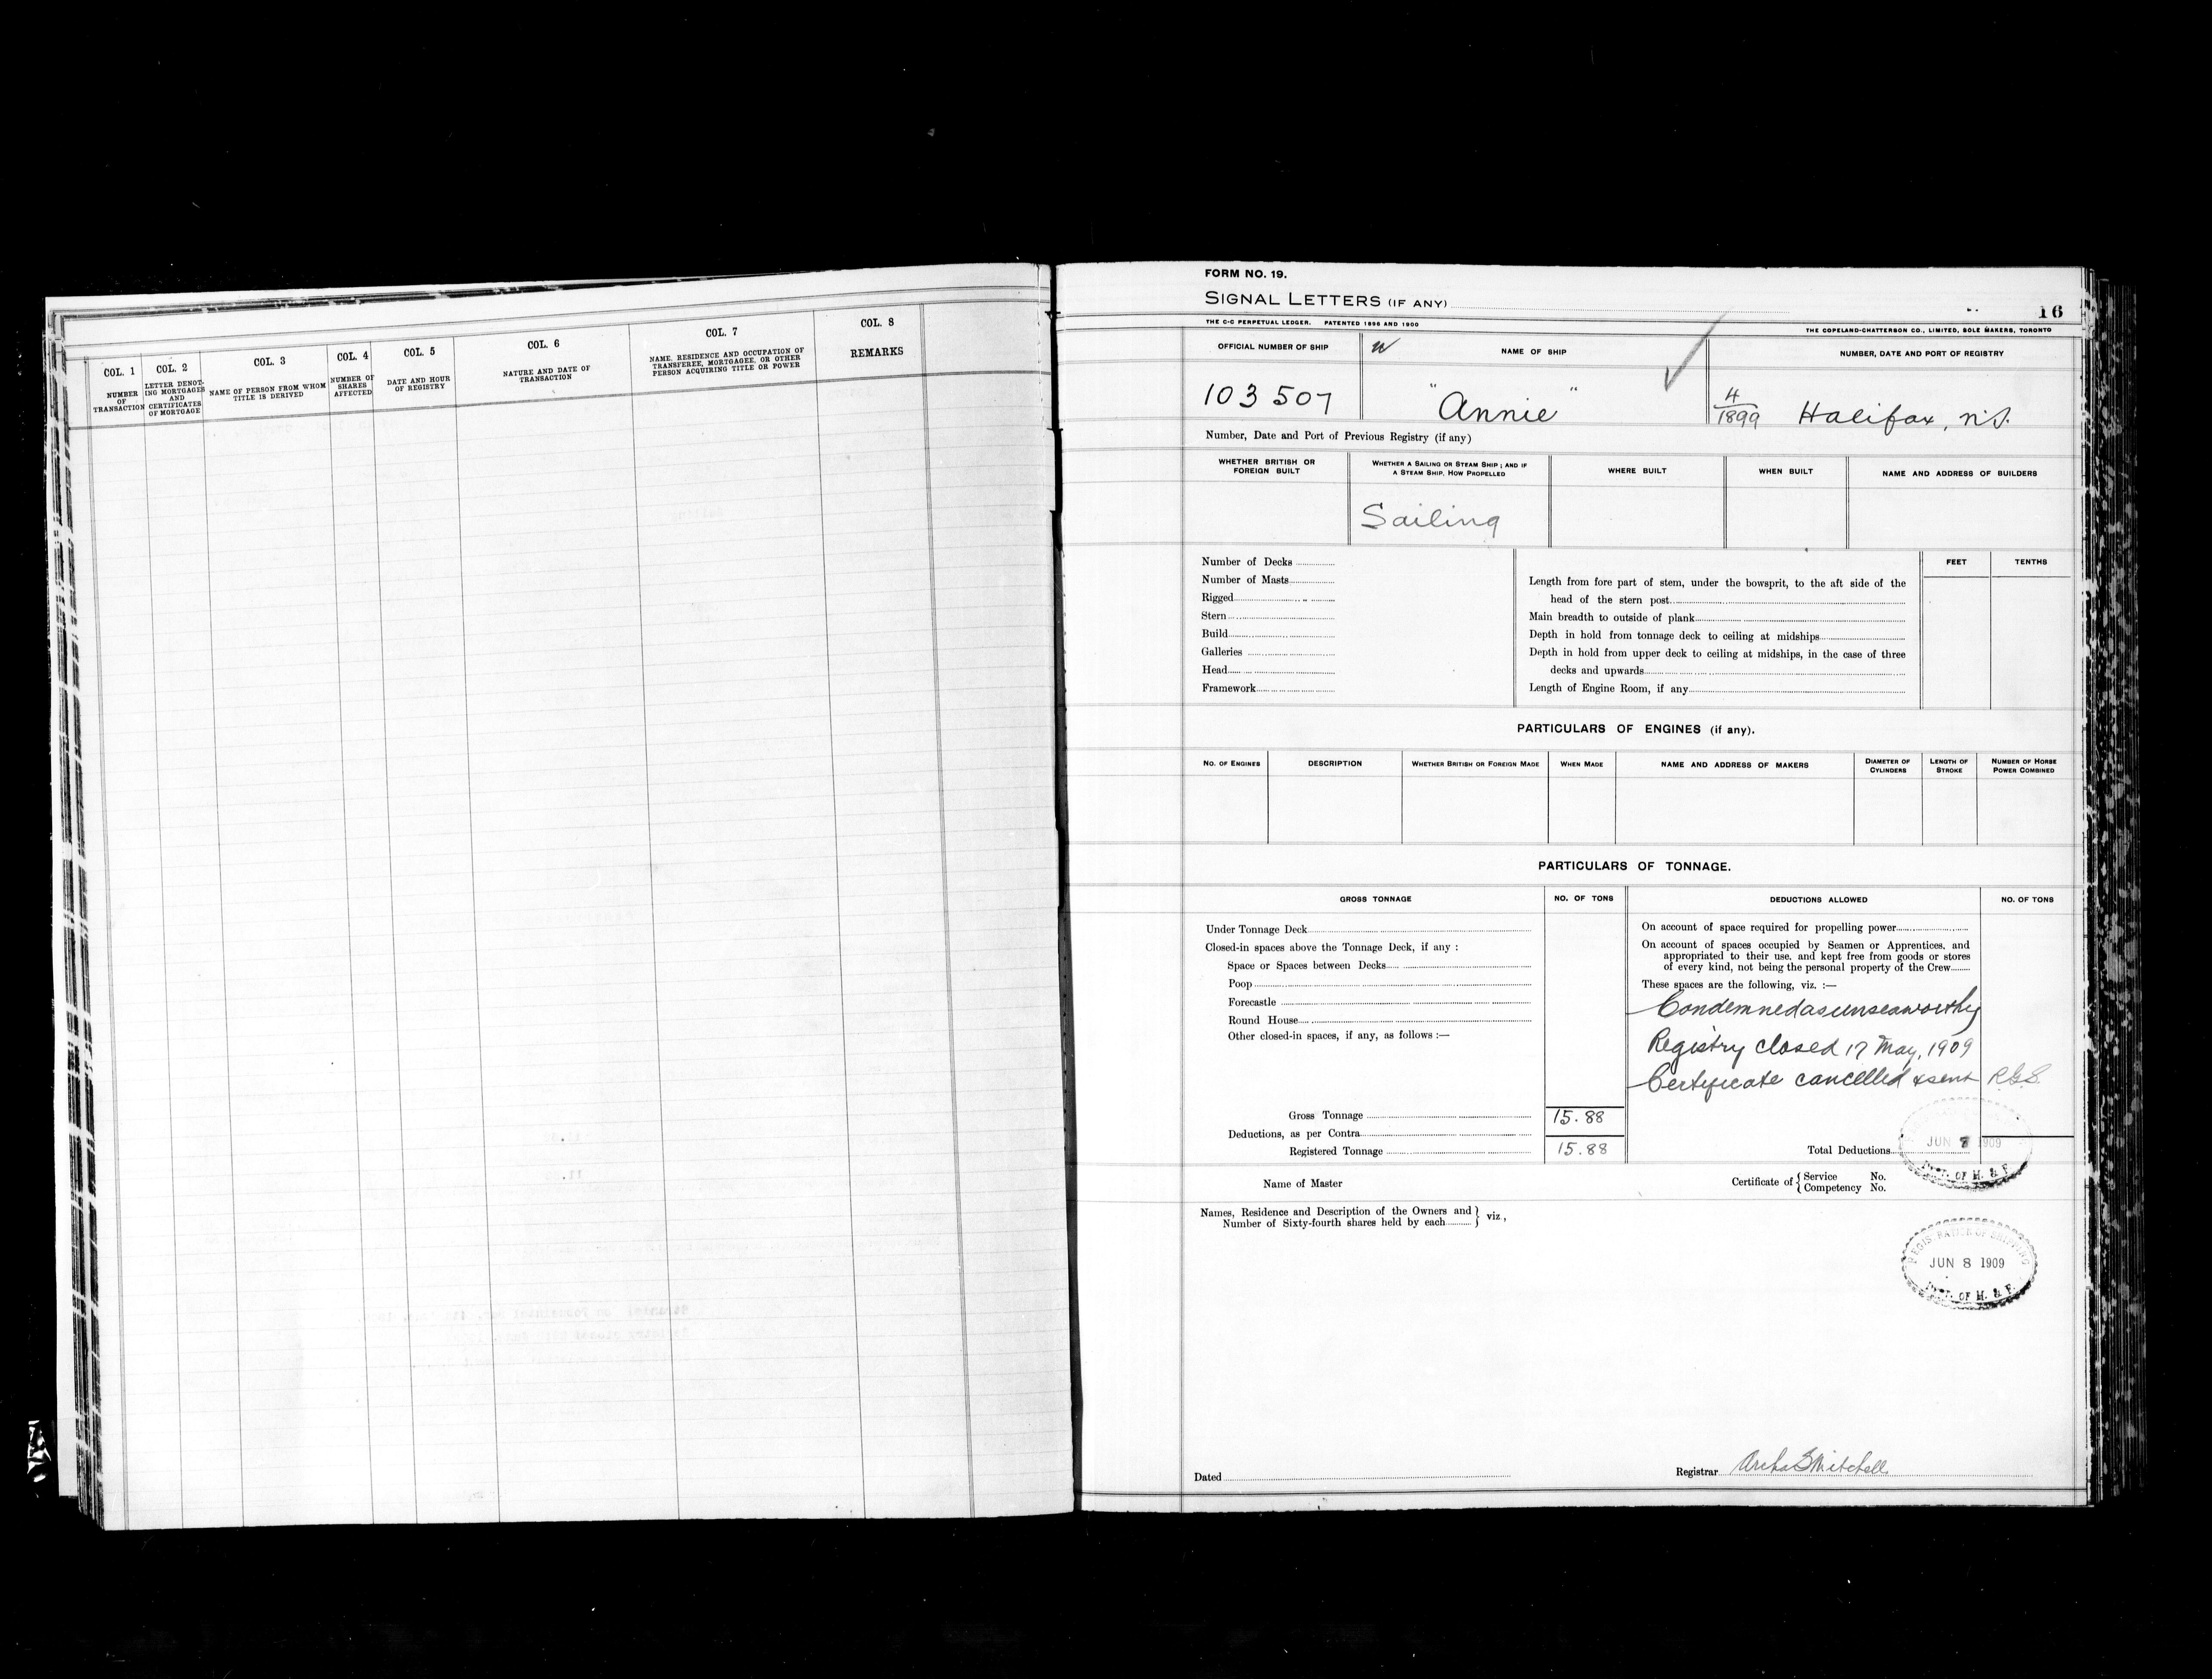 COL. 1
NUMBER
OF
TRANSACTION
COL. 2
LETTER DENOT-
ING MORTGAGES
AND
CERTIFICATES
OF MORTGAGE
COL. 3
NAME OF PERSON FROM WHOM
TITLE IS DERIVED
COL. 4
NUMBER OF
SHARES
AFFECTED
COL. 5
DATE AND HOUR
OF REGISTRY
COL. 6
NATURE AND DATE OF
TRANSACTION
COL. 7
NAME, RESIDENCE AND OCCUPATION OF
TRANSFEREE, MORTGAGEE, OR OTHER
PERSON ACQUIRING TITLE OR POWER
COL. 8
REMARKS
FORM NO. 19.
SIGNAL LETTERS (IF ANY)
16
THE C-C PERPETUAL LEDGER. PATENTED 1896 AND 1900
THE COPELAND-CHATTERSON CO., LIMITED, SOLE MAKERS, TORONTO
OFFICIAL NUMBER OF SHIP
NAME OF SHIP
NUMBER, DATE AND PORT OF REGISTRY
103507
"Annie"
4/1899 Halifax, N.S.
Number, Date and Port of Previous Registry (if any)
WHETHER BRITISH OR
FOREIGN BUILT
WHETHER A SAILING OR STEAM SHIP; AND IF
A STEAM SHIP, HOW PROPELLED
WHERE BUILT
WHEN BUILT
NAME AND ADDRESS OF BUILDERS
Sailing
Number of Decks
Number of Masts
Rigged
Stern
Build
Galleries
Head
Framework
FEET
TENTHS
Length from fore part of stem, under the bowsprit, to the aft side of the
head of the stern post
Main breadth to outside of plank
Depth in hold from tonnage deck to ceiling at midships
Depth in hold from upper deck to ceiling at midships, in the case of three
decks and upwards
Length of Engine Room, if any
PARTICULARS OF ENGINES (if any).
NO. OF ENGINES
DESCRIPTION
WHETHER BRITISH OR FOREIGN MADE
WHEN MADE
NAME AND ADDRESS OF MAKERS
DIAMETER OF
CYLINDERS
LENGTH OF
STROKE
NUMBER OF HORSE
POWER COMBINED
PARTICULARS OF TONNAGE.
GROSS TONNAGE
NO. OF TONS
DEDUCTIONS ALLOWED
NO. OF TONS
Under Tonnage Deck
Closed-in spaces above the Tonnage Deck, if any :
Space or Spaces between Decks
Poop
Forecastle
Round House
Other closed-in spaces, if any, as follows :—
Gross Tonnage 15.88
Deductions, as per Contra
Registered Tonnage 15.88
On account of space required for propelling power
On account of spaces occupied by Seamen or Apprentices, and
appropriated to their use, and kept free from goods or stores
of every kind, not being the personal property of the Crew
These spaces are the following, viz. :—
Condemned as unseaworthy
Registry closed 17 May, 1909
Certificate cancelled & sent R.G.S.
Total Deductions
JUN 1909
DEPT. OF M. & F.
Name of Master
Certificate of { Service No.
Competency No.
Names, Residence and Description of the Owners and
Number of Sixty-fourth shares held by each } viz,
REGISTRATION OF SHIPPING
JUN 8 1909
DEPT. OF M. & F.
Dated
Registrar Mitchell